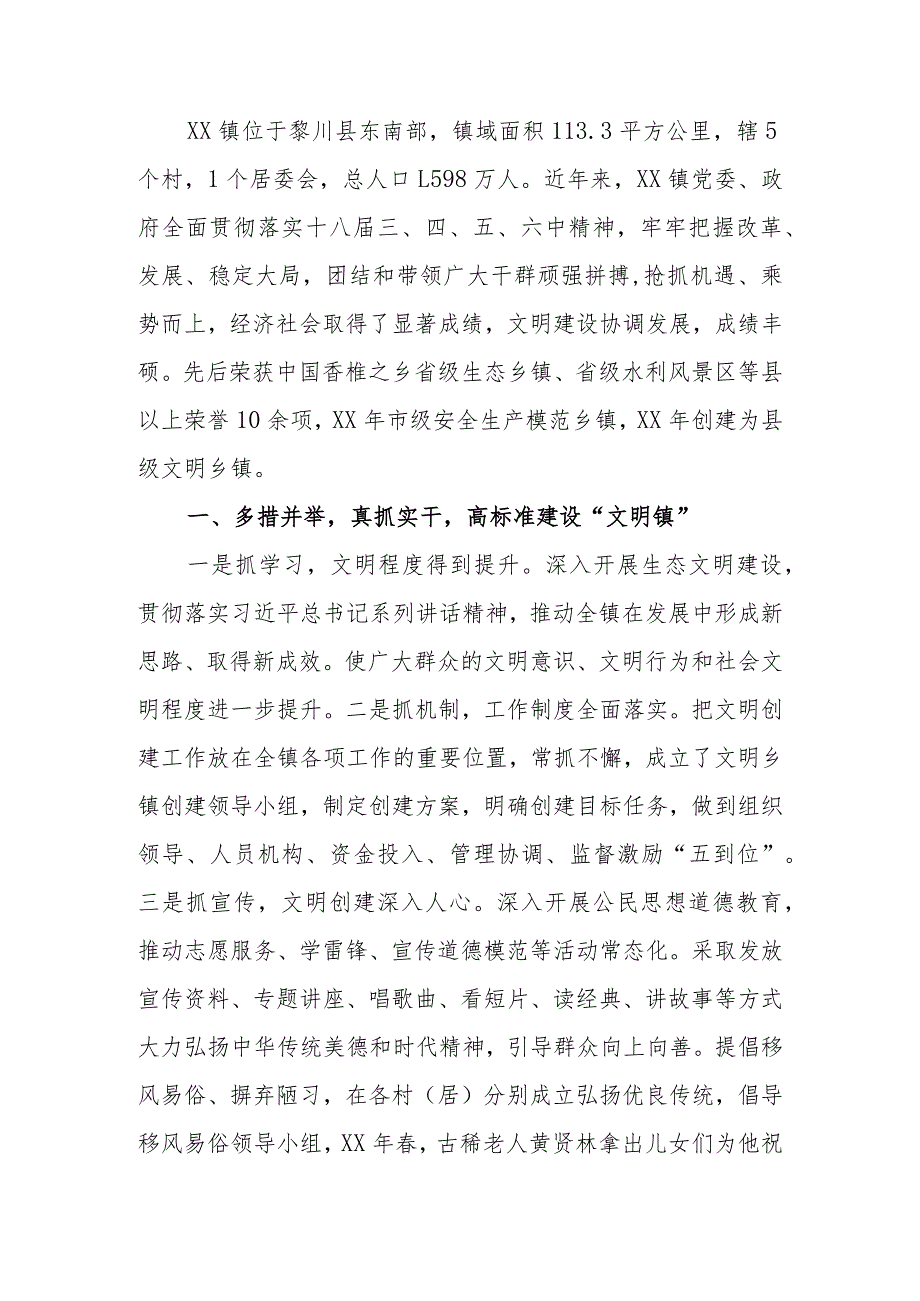 XX镇位于黎川县东南部，镇域面积113.3平方公里，辖5
个村，1个居委会，总人口L598万人。近年来，XX镇党委、政
府全面贯彻落实十八届三、四、五、六中精神，牢牢把握改革、
发展、稳定大局，团结和带领广大干群顽强拼搏,抢抓机遇、乘
势而上，经济社会取得了显著成绩，文明建设协调发展，成绩丰
硕。先后荣获中国香椎之乡省级生态乡镇、省级水利风景区等县
以上荣誉10余项，XX年市级安全生产模范乡镇，XX年创建为县
级文明乡镇。
一、多措并举，真抓实干，高标准建设“文明镇”
一是抓学习，文明程度得到提升。深入开展生态文明建设，
贯彻落实习近平总书记系列讲话精神，推动全镇在发展中形成新
思路、取得新成效。使广大群众的文明意识、文明行为和社会文
明程度进一步提升。二是抓机制，工作制度全面落实。把文明创
建工作放在全镇各项工作的重要位置，常抓不懈，成立了文明乡
镇创建领导小组，制定创建方案，明确创建目标任务，做到组织
领导、人员机构、资金投入、管理协调、监督激励“五到位”。
三是抓宣传，文明创建深入人心。深入开展公民思想道德教育，
推动志愿服务、学雷锋、宣传道德模范等活动常态化。采取发放
宣传资料、专题讲座、唱歌曲、看短片、读经典、讲故事等方式
大力弘扬中华传统美德和时代精神，引导群众向上向善。提倡移
风易俗、摒弃陋习，在各村（居）分别成立弘扬优良传统，倡导
移风易俗领导小组，XX年春，古稀老人黄贤林拿出儿女们为他祝